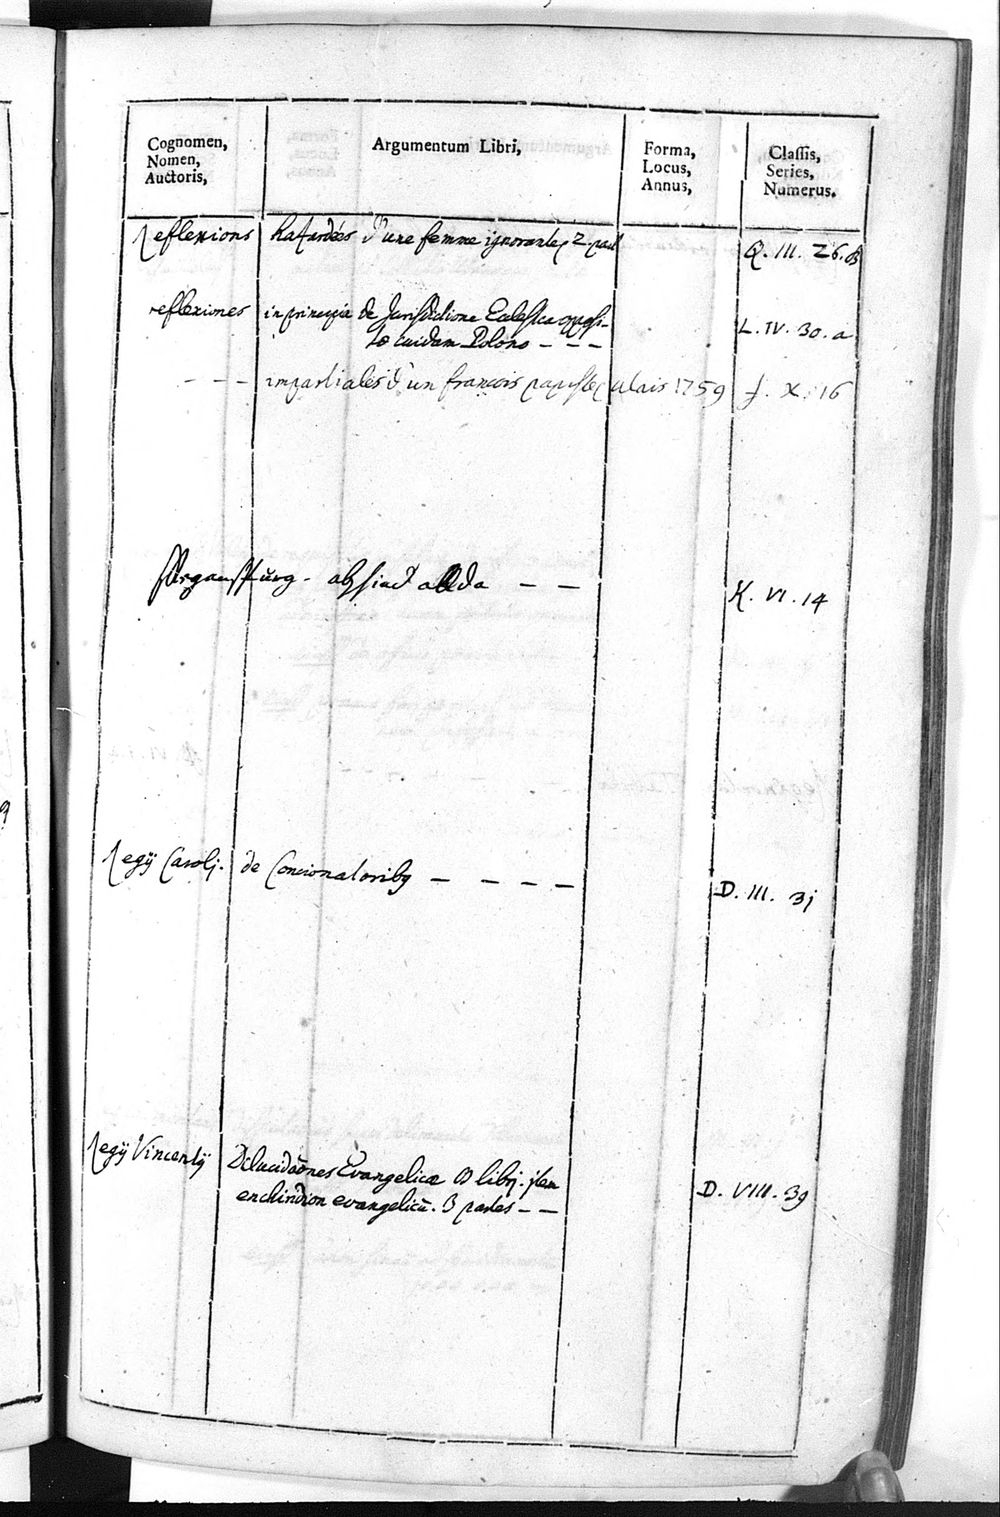 Cognomen, Nomen, Auctoris,
Argumentum Libri,
Forma, Locus, Annus,
Classis, Series, Numerus.
reflexions hasardées d'une femme ignorante 2 part Q. III. 26. B
reflexiones in principia de Jurisdictione Ecclesica opposi-
tæ cuidam Polono - - - L. IV. 30. a
- - - impartiales d'un francois papiste alais 1759 f. X. 16
- - K. VI. 14
Regij Carolj. de Concionatoribq - - - - D. III. 31
Regij Vincentij Dilucidaōnes Evangelicæ 8 libri. item
enchiridion evangelicū. 3 partes - - D. VIII. 39